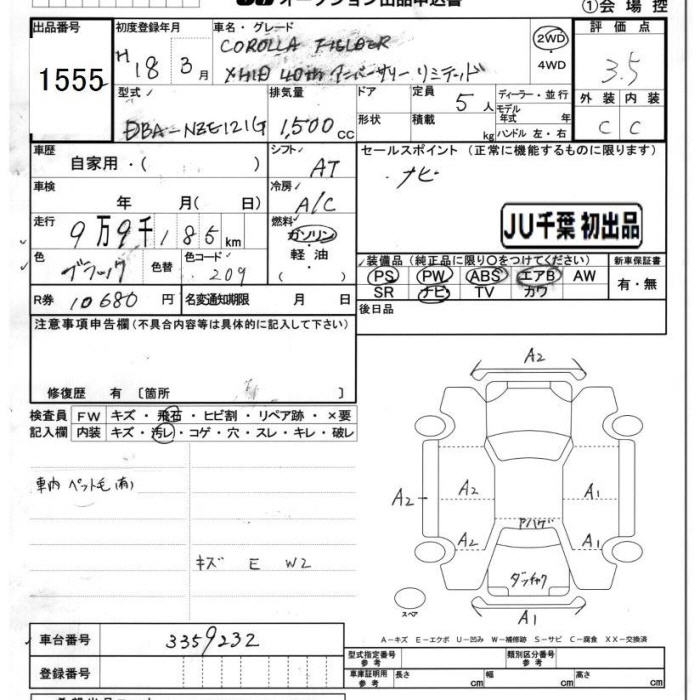 オークション出品申込書
①会場控
出品番号
1555
初度登録年月
H18 3月
車名・グレード
COROLLA FIELDER
X HID 40th アニバーサリー リミテッド
2WD
・4WD
評価点
3.5
外装 内装
C C
型式
DBA-NZE121G
排気量
1,500cc
ドア
形状
定員 5人
積載 kg
ディーラー・並行
モデル年式 年
ハンドル 左・右
車歴
自家用・( )
シフト
AT
セールスポイント(正常に機能するものに限ります)
・ナビ
車検
年 月( 日)
冷房
A/C
JU千葉 初出品
走行
9万9千185km
燃料
ガソリン
・軽油・
( )
色
ブラック
色替
色コード
209
装備品(純正品に限り○をつけてください)
PS PW ABS エアB AW
SR ナビ TV カワ
新車保証書
有・無
R券 10680円
名変通知期限 月 日
後日品
注意事項申告欄(不具合内容等は具体的に記入して下さい)
修復歴 有 〔箇所 〕
検査員 FW キズ・飛石・ヒビ割・リペア跡・×要
記入欄 内装 キズ・汚レ・コゲ・穴・スレ・キレ・破レ
車内 ペット毛(有)
キズ E W2
A2
A2
A2
A1
A2
A1
スペア
A1
A-キズ E-エクボ U-凹み W-補修跡 S-サビ C-腐食 XX-交換済
車台番号 3359232
登録番号
型式指定番号
参考
類別区分番号
参考
車庫証明用
参考
長さ cm 幅 cm 高さ cm